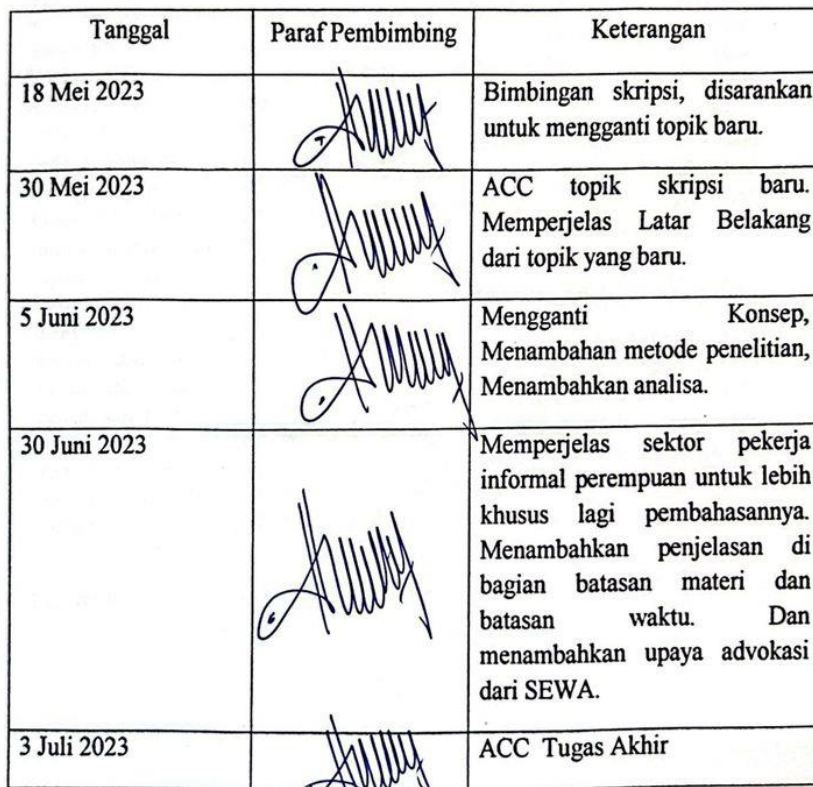 Tanggal Paraf Pembimbing Keterangan
18 Mei 2023 Bimbingan skripsi, disarankan
untuk mengganti topik baru.
30 Mei 2023 ACC topik skripsi baru.
Memperjelas Latar Belakang
dari topik yang baru.
5 Juni 2023 Mengganti Konsep,
Menambahan metode penelitian,
Menambahkan analisa.
30 Juni 2023 Memperjelas sektor pekerja
informal perempuan untuk lebih
khusus lagi pembahasannya.
Menambahkan penjelasan di
bagian batasan materi dan
batasan waktu. Dan
menambahkan upaya advokasi
dari SEWA.
3 Juli 2023 ACC Tugas Akhir